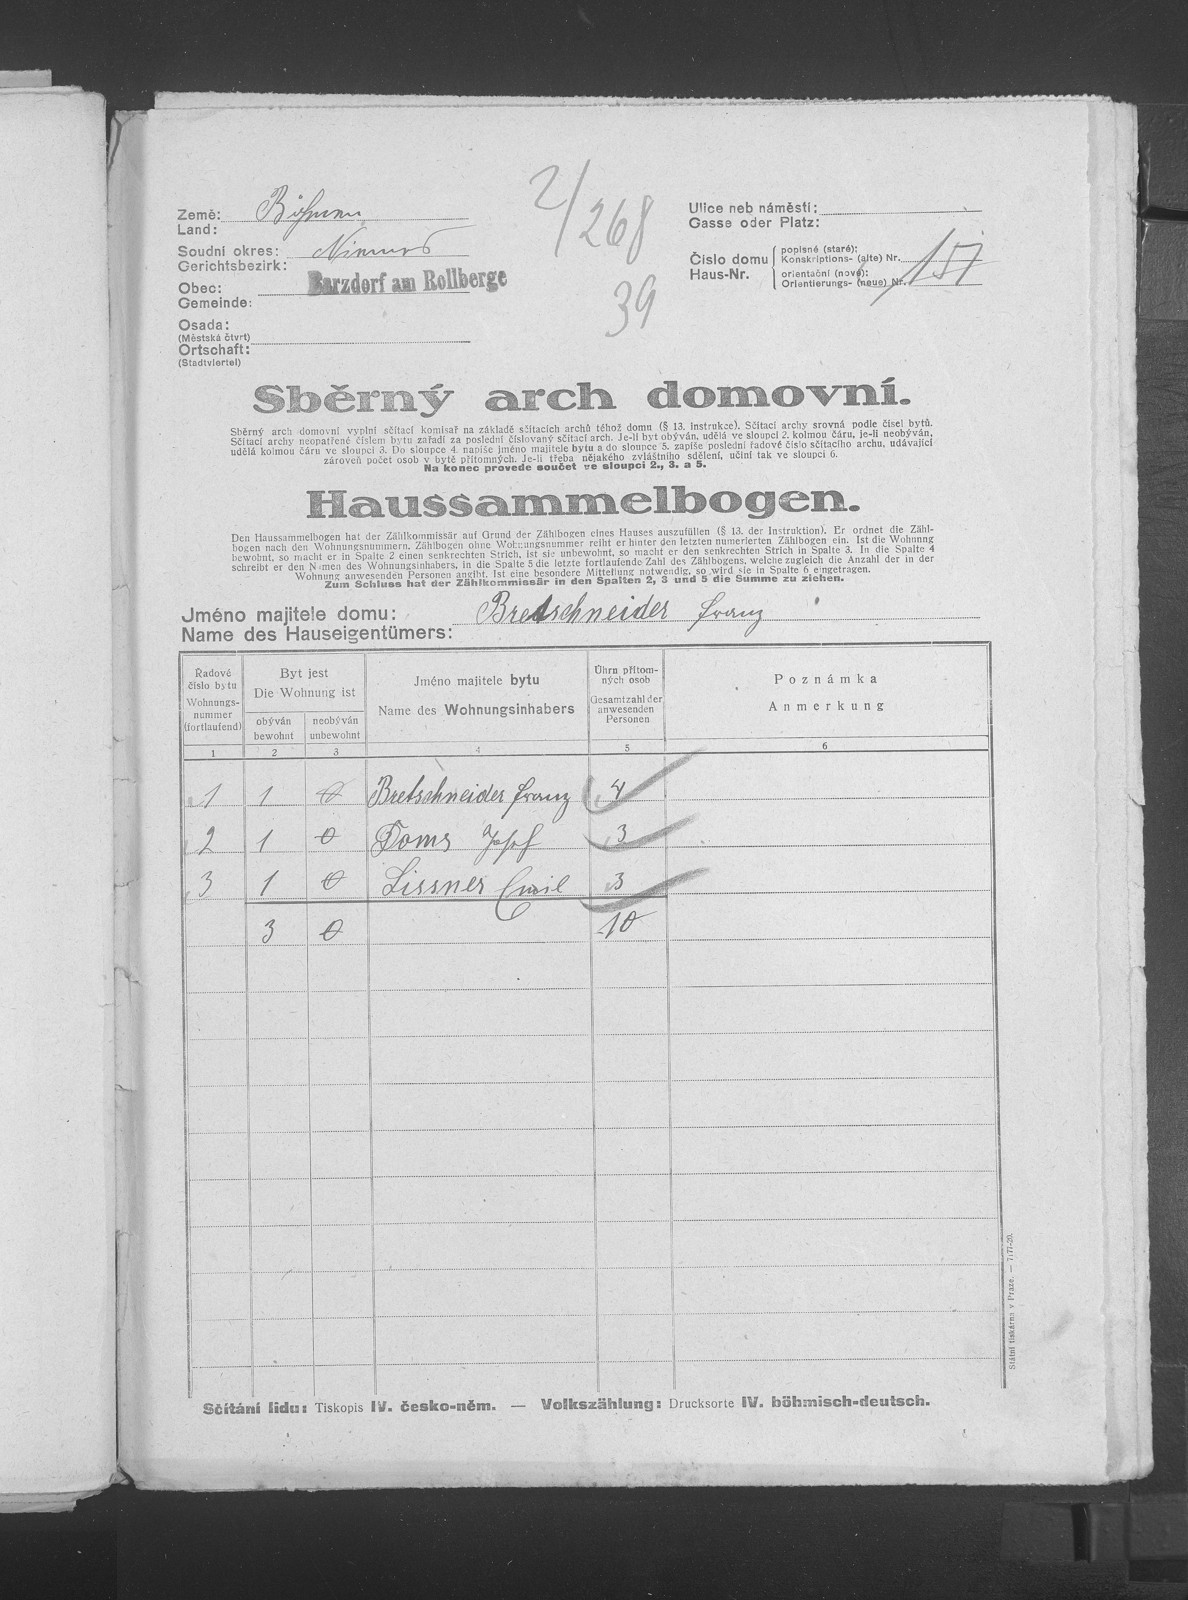 2/268
39
Země: Böhmen
Land:
Soudní okres: Niemes
Gerichtsbezirk:
Obec: Barzdorf am Rollberge
Gemeinde:
Osada:
(Městská čtvrt)
Ortschaft:
(Stadtviertel)
Ulice neb náměstí:
Gasse oder Platz:
Číslo domu
Haus-Nr.
popisné (staré):
Konskriptions- (alte) Nr. 157
orientační (nové):
Orientierungs- (neue) Nr.
Sběrný arch domovní.
Sběrný arch domovní vyplní sčítací komisař na základě sčítacích archů téhož domu (§ 13. instrukce). Sčítací archy srovná podle čísel bytů.
Sčítací archy neopatřené číslem bytu zařadí za poslední číslovaný sčítací arch. Je-li byt obýván, udělá ve sloupci 2. kolmou čáru, je-li neobýván,
udělá kolmou čáru ve sloupci 3. Do sloupce 4. napíše jméno majitele bytu a do sloupce 5. zapíše poslední řadové číslo sčítacího archu, udávající
zároveň počet osob v bytě přítomných. Je-li třeba nějakého zvláštního sdělení, učiní tak ve sloupci 6.
Na konec provede součet ve sloupci 2., 3. a 5.
Haussammelbogen.
Den Haussammelbogen hat der Zählkommissär auf Grund der Zählbogen eines Hauses auszufüllen (§ 13. der Instruktion). Er ordnet die Zähl-
bogen nach den Wohnungsnummern. Zählbogen ohne Wohnungsnummer reiht er hinter den letzten numerierten Zählbogen ein. Ist die Wohnung
bewohnt, so macht er in Spalte 2 einen senkrechten Strich, ist sie unbewohnt, so macht er den senkrechten Strich in Spalte 3. In die Spalte 4
schreibt er den Namen des Wohnungsinhabers, in die Spalte 5 die letzte fortlaufende Zahl des Zählbogens, welche zugleich die Anzahl der in der
Wohnung anwesenden Personen angibt. Ist eine besondere Mitteilung notwendig, so wird sie in Spalte 6 eingetragen.
Zum Schluss hat der Zählkommissär in den Spalten 2, 3 und 5 die Summe zu ziehen.
Jméno majitele domu: Bretschneider Franz
Name des Hauseigentümers:
Řadové číslo bytu Wohnungs-nummer (fortlaufend)
Byt jest
Die Wohnung ist
obýván bewohnt
neobýván unbewohnt
Jméno majitele bytu
Name des Wohnungsinhabers
Úhrn přítom-ných osob Gesamtzahl der anwesenden Personen
Poznámka
Anmerkung
1 2 3 4 5 6
1 1 0 Bretschneider Franz 4
2 1 0 Toms Josef 3
3 1 0 Lissner Emil 3
3 0 10
Sčítání lidu: Tiskopis IV. česko-něm. — Volkszählung: Drucksorte IV. böhmisch-deutsch.
Státní tiskárna v Praze. — 7177-20.